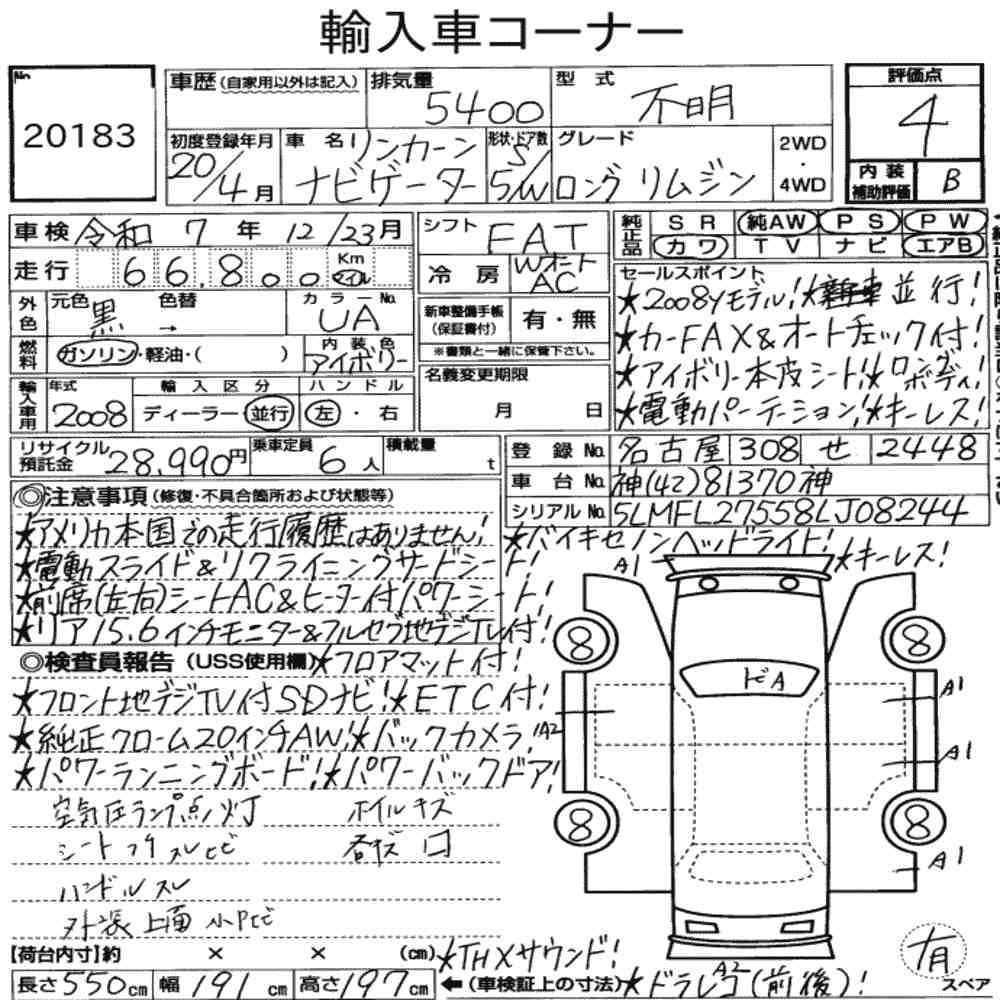 輸入車コーナー
No
20183
車歴(自家用以外は記入)
排気量
5400
型式
不明
評価点
4
初度登録年月
20/4月
車名
リンカーン
ナビゲーター
形状・ドア数
5/W
グレード
ロング リムジン
2WD
・
4WD
内装
補助評価
B
車検 令和 7年 12/23月
シフト
FAT
純正品
SR 純AW PS PW
カワ TV ナビ エアB
走行 66,800 Km マイル
冷房
Wオート
AC
セールスポイント
★2008yモデル!★新車並行!
外色
元色 黒 色替 →
カラーNo.
UA
新車整備手帳
(保証書付)
有・無
★カーFAX&オートチェック付!
燃料
ガソリン・軽油・( )
内装色
アイボリー
※書類と一緒に保管下さい。
★アイボリー本皮シート!★ロングボディ!
輸入車用
年式
2008
輸入区分
ディーラー・並行
ハンドル
左・右
名義変更期限
月 日
★電動パーテーション!★キーレス!
リサイクル
預託金
28,990円
乗車定員
6人
積載量
t
登録No.
名古屋 308 せ 2448
車台No.
神(42)81370神
シリアルNo.
5LMFL27558LJ08244
◎注意事項(修復・不具合箇所および状態等)
★アメリカ本国での走行履歴はありません!
★バイキセノンヘッドライト!
★キーレス!
★電動スライド&リクライニングサードシート!
★前席(左右)シートAC&ヒーター付パワーシート!
★リア15.6インチモニター&フルセグ地デジTV付!
◎検査員報告(USS使用欄)
★フロアマット付!
★フロント地デジTV付SDナビ!★ETC付!
★純正クローム20インチAW!★バックカメラ!
★パワーランニングボード!★パワーバックドア!
空気圧ランプ点灯
ホイルキズ
シート
ハンドルスレ
外装上面 小
A1
8
8
ドA
A1
A2
A1
8
8
A1
A2
【荷台内寸】約 × × (cm)
★THXサウンド!
長さ550cm 幅191cm 高さ197cm
←(車検証上の寸法)
★ドラレコ(前後)!
有
スペア